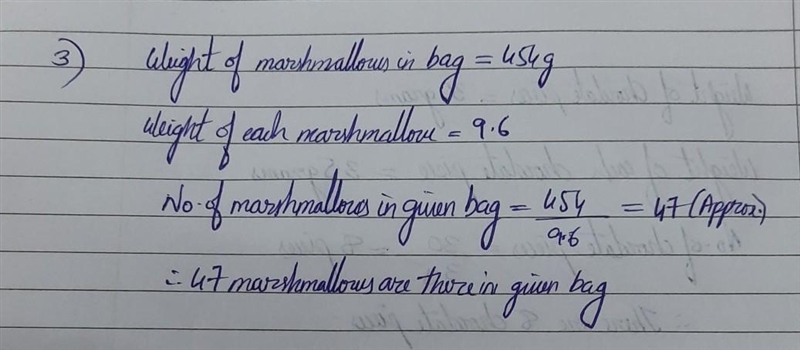 3) Weight of marshmallows in bag = 454g
Weight of each marshmallow = 9.6
No. of marshmallows in given bag = 454/9.6 = 47 (Approx.)
∴ 47 marshmallows are there in given bag